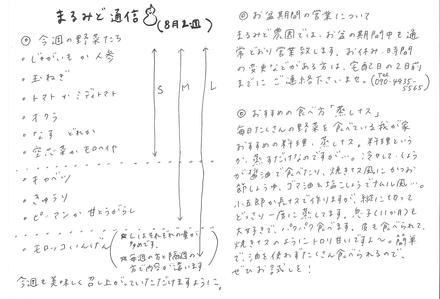 まるみど通信 (8月2週)
◎ 今週の野菜たち
・じゃがいもか人参
・玉ねぎ
・トマトかミディトマト
・オクラ
・なす どれか
・空芯菜かモロヘイヤ
S M L
・キャベツ
・きゅうり
・ピーマンか甘とうがらし
・モロッコいんげん
※Lはそれぞれの量が多めです。
※毎週の方と隔週の方で内容が違います
今週も美味しく召し上がっていただけますように。
◎ お盆期間の営業について
まるみど農園では、お盆の期間中も通
常どおり営業致します。お休み、日時間
の変更などがある方は、宅配日の2日前
までにご連絡下さいませ。(TEL 090-4935-5565)
◎ おすすめの食べ方「蒸しナス」
毎日たくさんの野菜を食べている我が家
おすすめの料理、蒸しナス。料理という
か、蒸すだけなのですが…。冷やしてしょう
が醤油で食べたり、焼きナス風にかつお
節しょうゆ、ゴマ油と塩こしょうでナムル風…。
小五郎か長ナスで作りますが、縦に切って
どっさり一度に蒸します。息子(11か月)も
大好きで、パクパク食べます。皮も食べられて、
焼きナスのようにトロリ甘いですよ〜。簡単
で、油を使わずたくさん食べられるので、
ぜひお試しを!